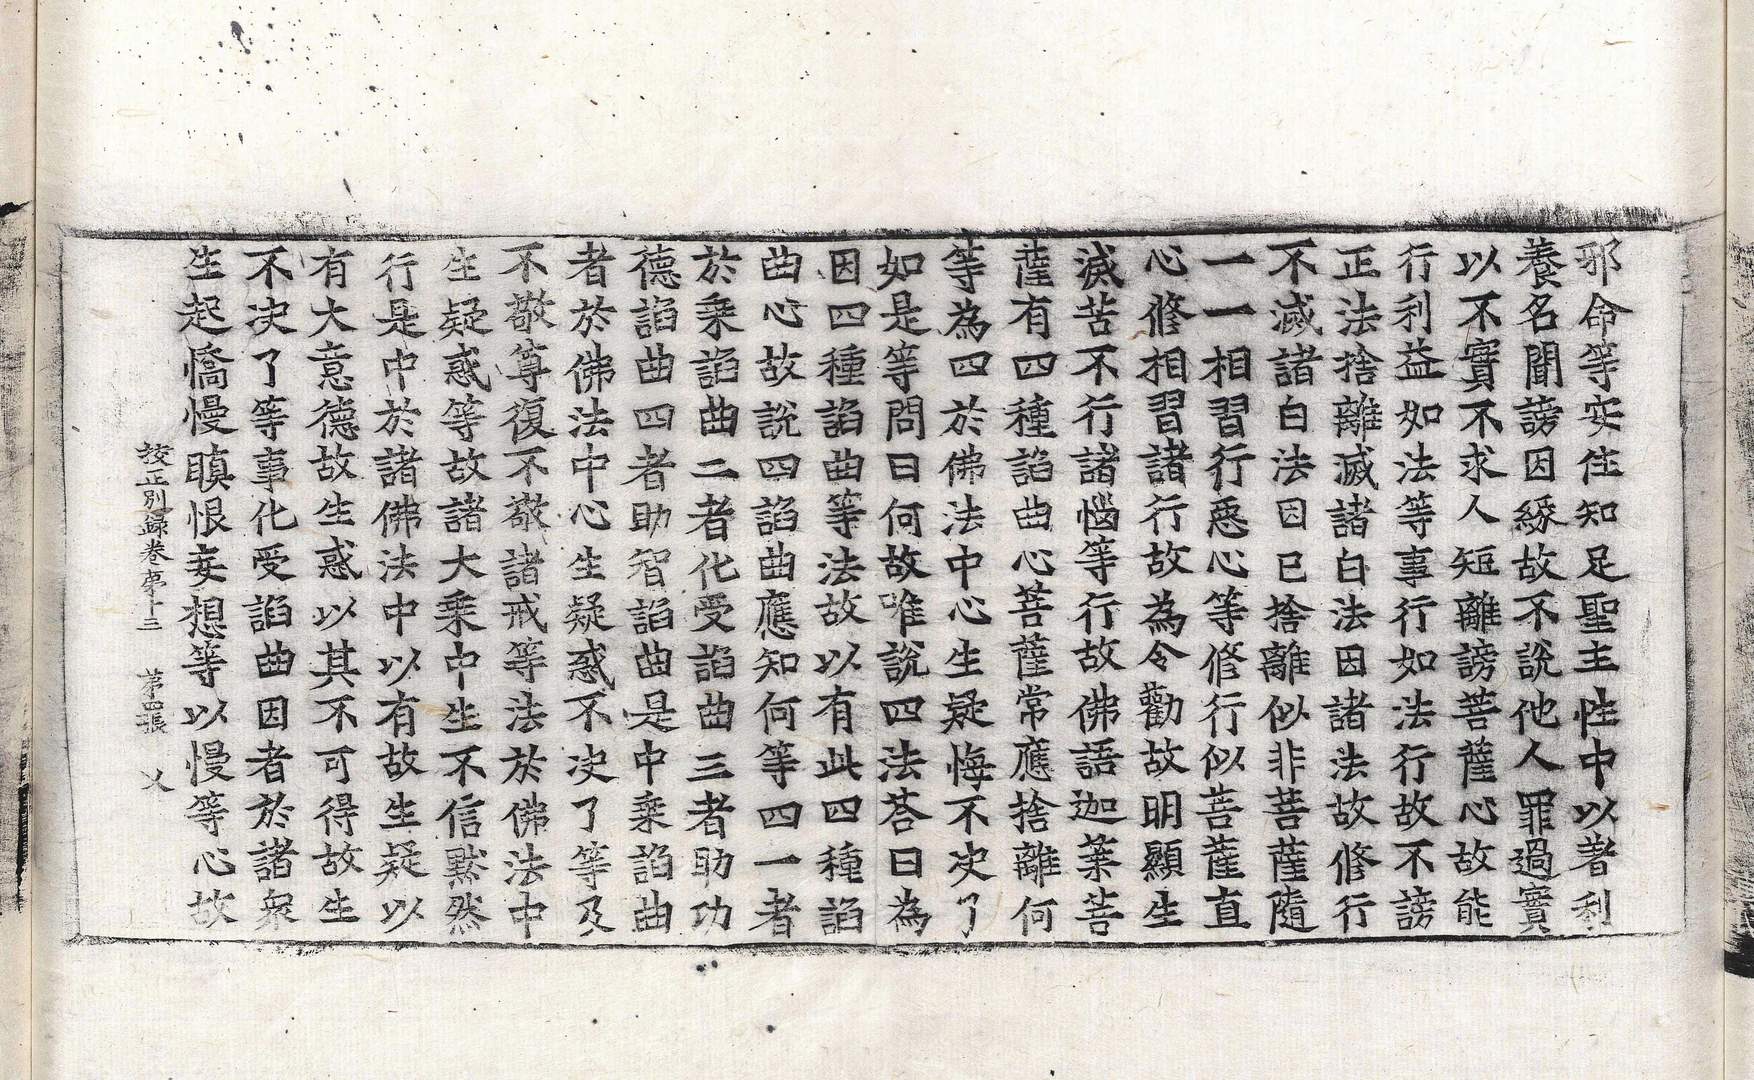 邪命等安住知足聖主性中以著利
養名聞謗因緣故不說他人罪過實
以不實不求人短離謗菩薩心故能
行利益如法等事行如法行故不謗
正法捨離滅諸白法因諸法故修行
不滅諸白法因已捨離似非菩薩隨
一一相習行惡心等修行似菩薩直
心修相習諸行故為令勸故明顯生
滅苦不行諸惱等行故佛語迦葉菩
薩有四種諂曲心菩薩常應捨離何
等為四於佛法中心生疑悔不决了
如是等問曰何故唯說四法荅曰為
因四種諂曲等法故以有此四種諂
曲心故說四諂曲應知何等四一者
於乘諂曲二者化受諂曲三者助功
德諂曲四者助智諂曲是中乘諂曲
者於佛法中心生疑惑不决了等及
不敬尊復不敬諸戒等法於佛法中
生疑惑等故諸大乘中生不信默然
行是中於諸佛法中以有故生疑以
有大意德故生惑以其不可得故生
不决了等事化受諂曲因者於諸衆
生起憍慢瞋恨妄想等以慢等心故
校正別錄卷第十三　第四張　乂